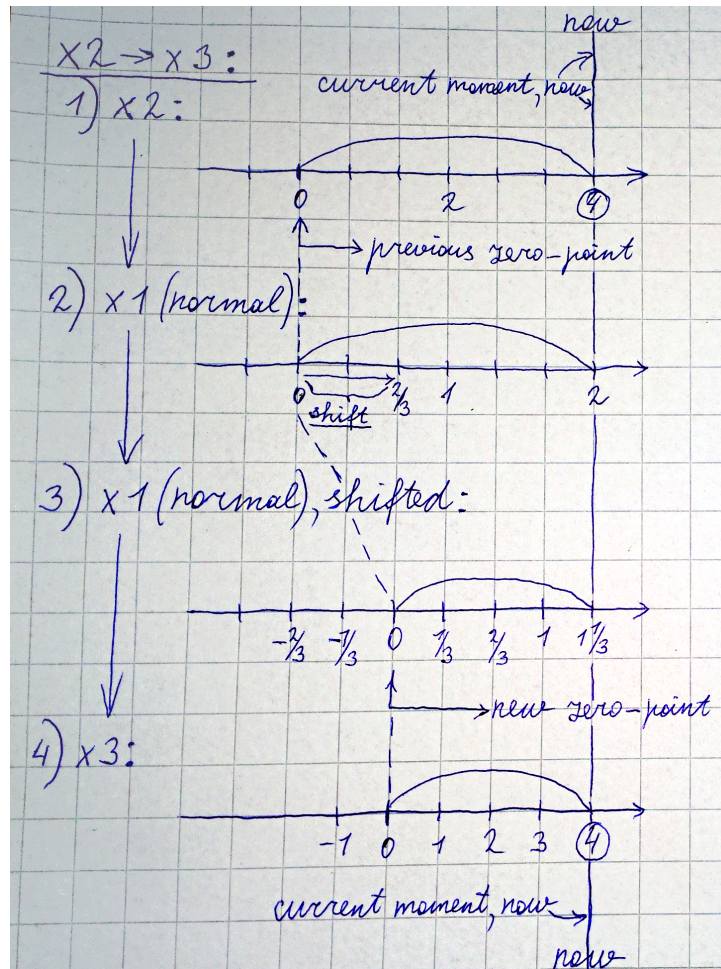 now
x2 → x3:
current moment, now
1) x2:
0 2 4
previous zero-point
2) x1 (normal):
0 2/3 1 2
shift
3) x1 (normal), shifted:
-2/3 -1/3 0 1/3 2/3 1 1 1/3
new zero-point
4) x3:
-1 0 1 2 3 4
current moment, now
now